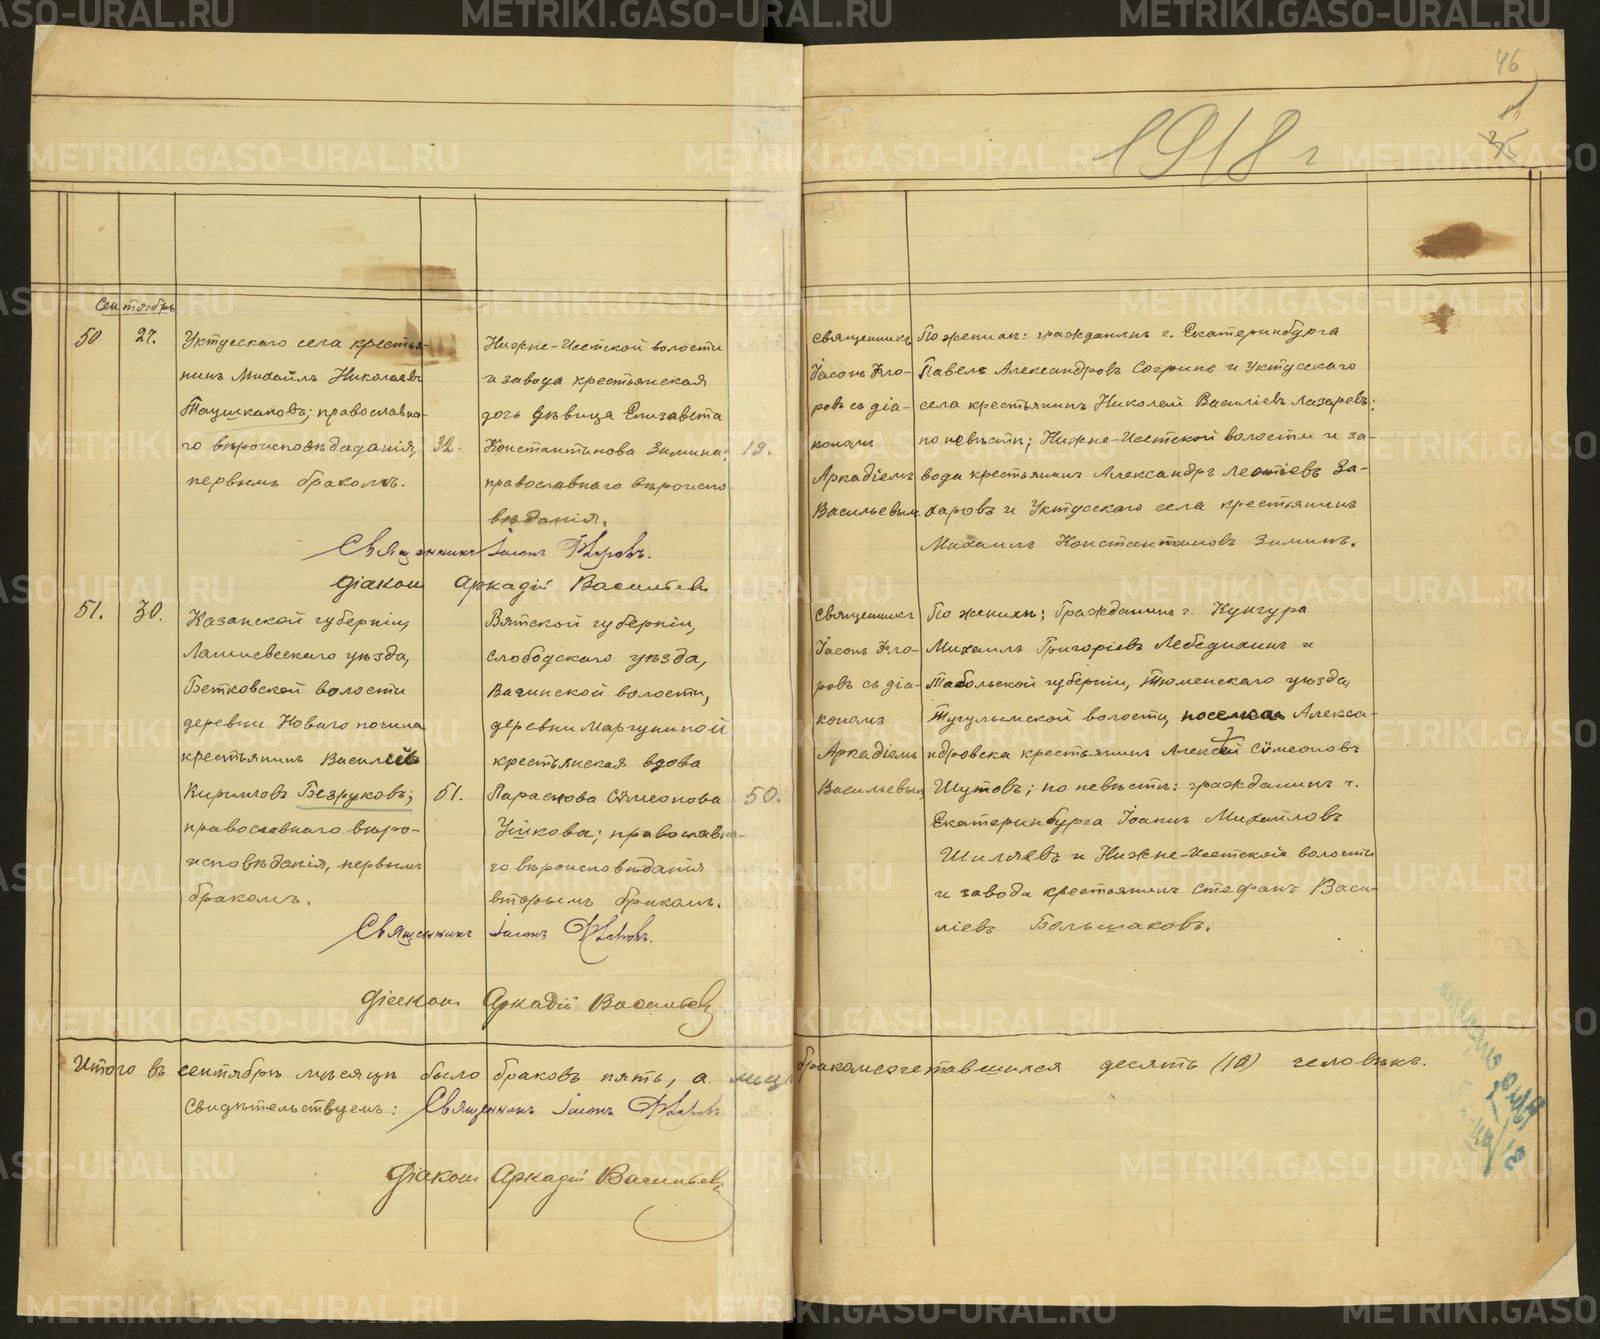 46
1918 г
Сентябрь
50
27.
Уктусскаго села крестья-
нинъ Михаилъ Николаевъ
православна-
го вѣроисповѣдаданія,
первымъ бракомъ.
32.
Нижне-Исетской волости
и завода крестьянская
дочь дѣвица Елизавета
Константинова Зимина;
православнаго вѣроиспо
вѣданія.
19.
священникъ
Іасонъ Фло-
ровъ съ діа-
кономъ
Аркадіемъ
Васильевым
По женихѣ: гражданинъ г. Екатеринбурга
Павелъ Александровъ Согринъ и Уктусскаго
села крестьянинъ Николай Василіевъ Лазаревъ;
по невѣстѣ; Нижне-Исетской волости и за-
вода крестьянинъ Александръ Леонтіевъ За-
харовъ и Уктусскаго села крестьянинъ
Михаилъ Константиновъ Зиминъ.
Священникъ Іасонъ Флоровъ.
Діаконъ Аркадій Васильевъ
51.
30.
Казанской губерніи,
Лаишевскаго уѣзда,
Бетковской волости
деревни Новаго почина
крестьянинъ Василій
Кирилловъ Безруковъ;
православнаго вѣро-
исповѣданія, первымъ
бракомъ.
51.
Вятской губерніи,
Слободскаго уѣзда,
волости,
деревни
крестьянская вдова
Симеонова
православна-
го вѣроисповѣданія
вторымъ бракомъ.
50.
священникъ
Іасонъ Фло-
ровъ съ діа-
кономъ
Аркадіемъ
Васильевым
По женихѣ; Гражданинъ г. Кунгура
Михаилъ Григоріевъ Лебедкинъ и
Тобольской губерніи, Тюменскаго уѣзда,
Тугулымской волости, поселка Алекса-
ндровска крестьянинъ Алексѣй Симеоновъ
Шутовъ; по невѣстѣ: гражданинъ г.
Екатеринбурга Іоаннъ Михайловъ
Шиляевъ и Нижне-Исетской волости
и завода крестьянинъ Стефанъ Васи-
ліевъ Большаковъ.
Священникъ Іасонъ Флоровъ.
Діаконъ Аркадій Васильевъ
Итого въ сентябрѣ мѣсяцѣ было браковъ пять, а лицъ бракомсочетавшихся десять (10) человѣкъ.
Свидѣтельствуемъ: Священникъ Іасонъ Флоровъ
Діаконъ Аркадій Васильевъ
METRIKI.GASO-URAL.RU